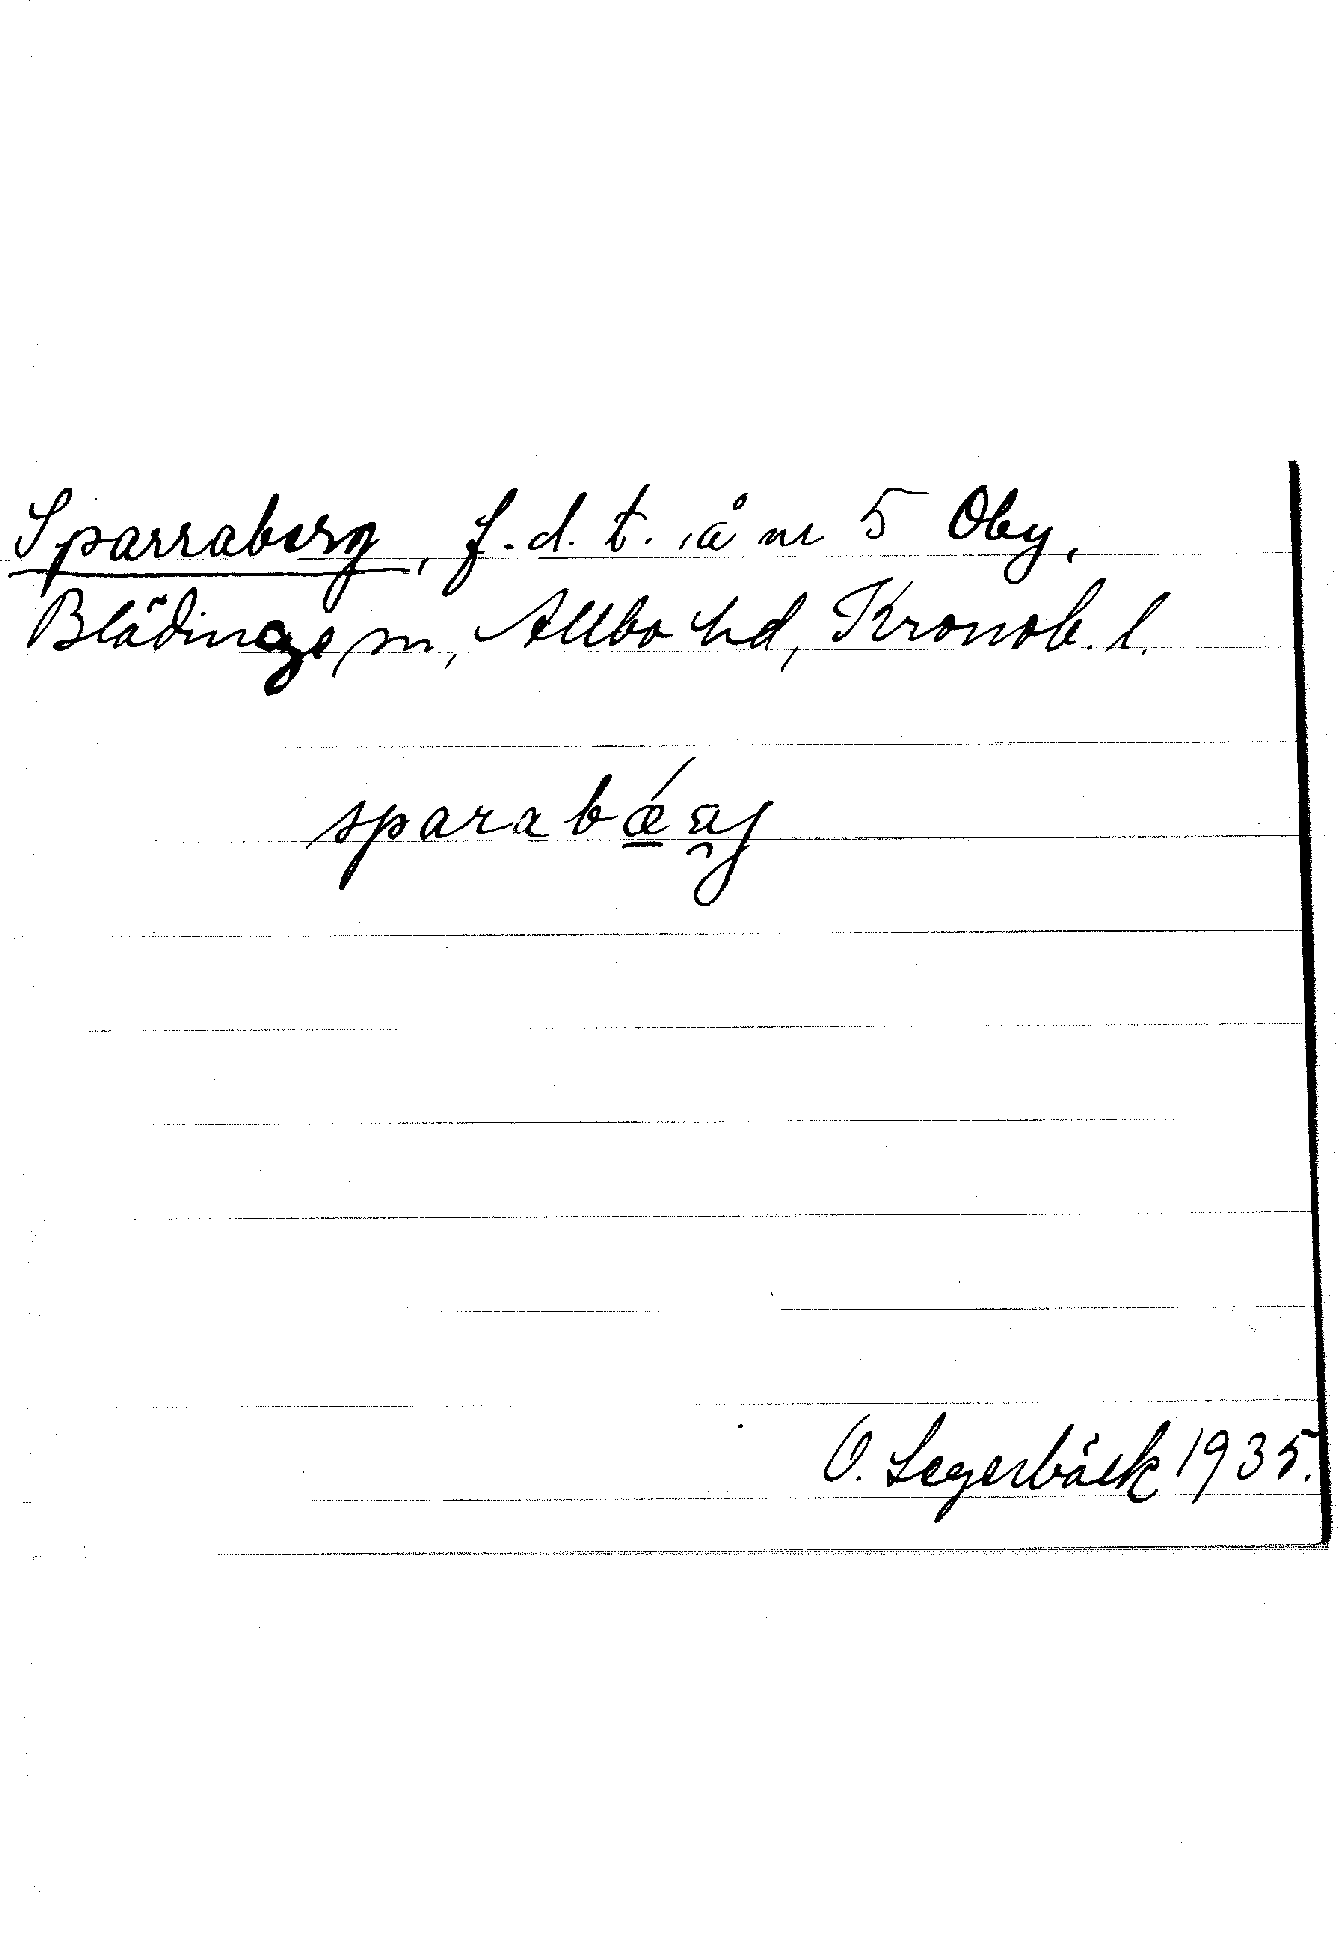 Sparraberg, f.d.t. å nr 5 Oby,
Blädinge sn, Allbo hd, Kronob. l.
O. Segerbäck 1935.